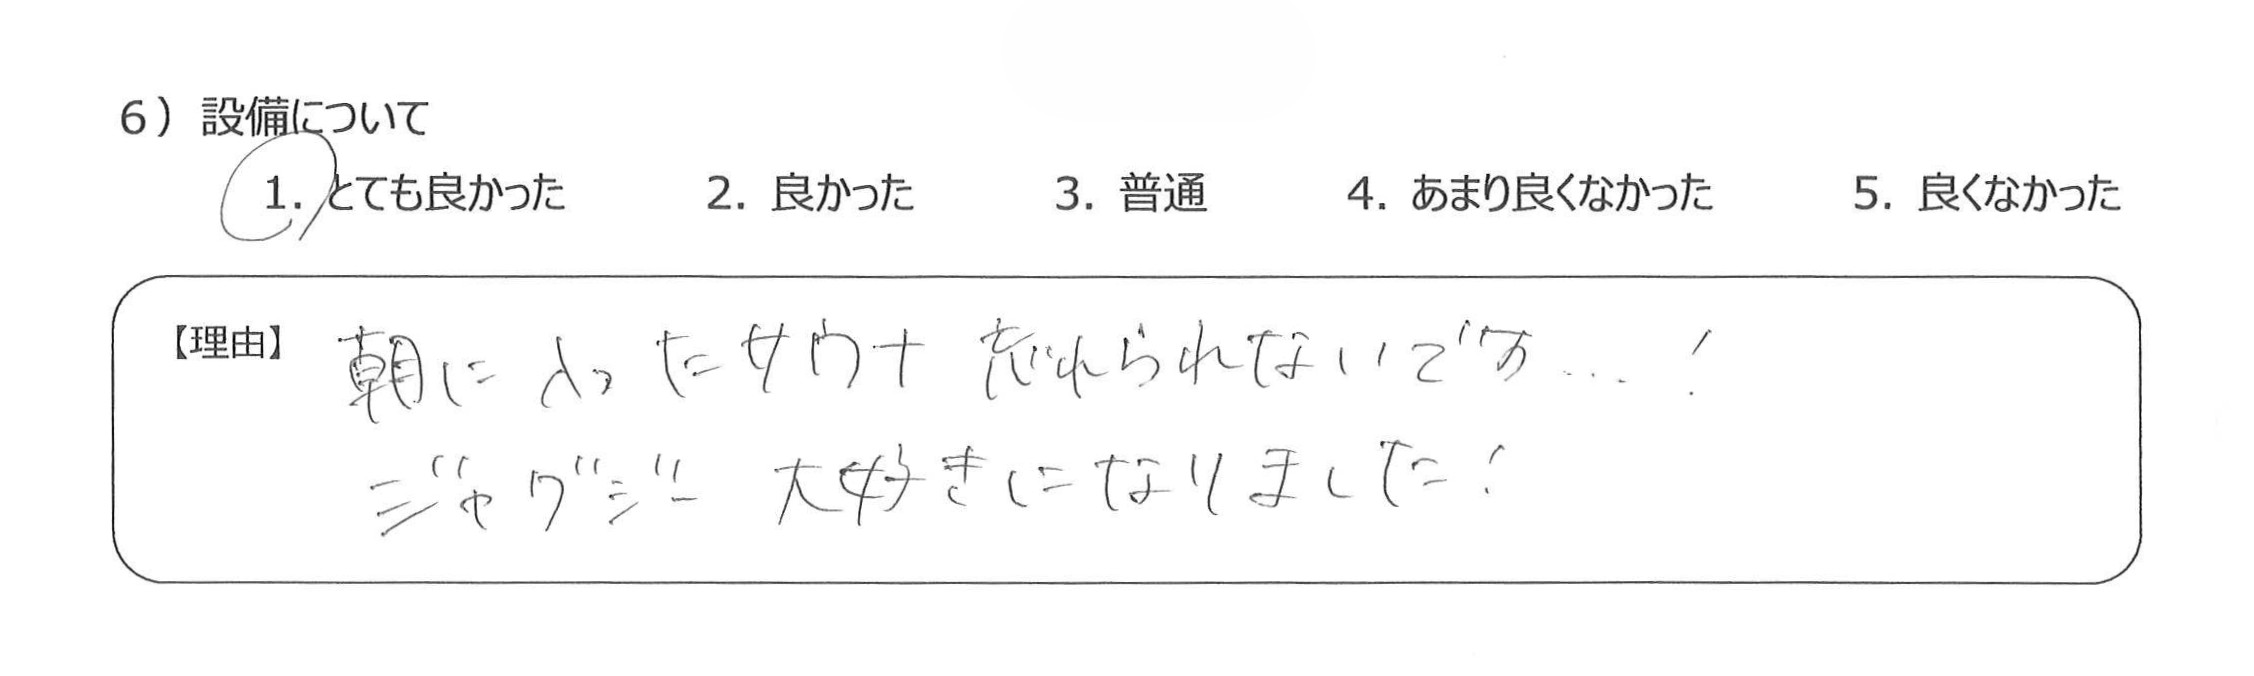 6）設備について
1. とても良かった 2. 良かった 3. 普通 4. あまり良くなかった 5. 良くなかった
【理由】 朝に入ったサウナ 忘れられないです…！
ジャグジー 大好きになりました！